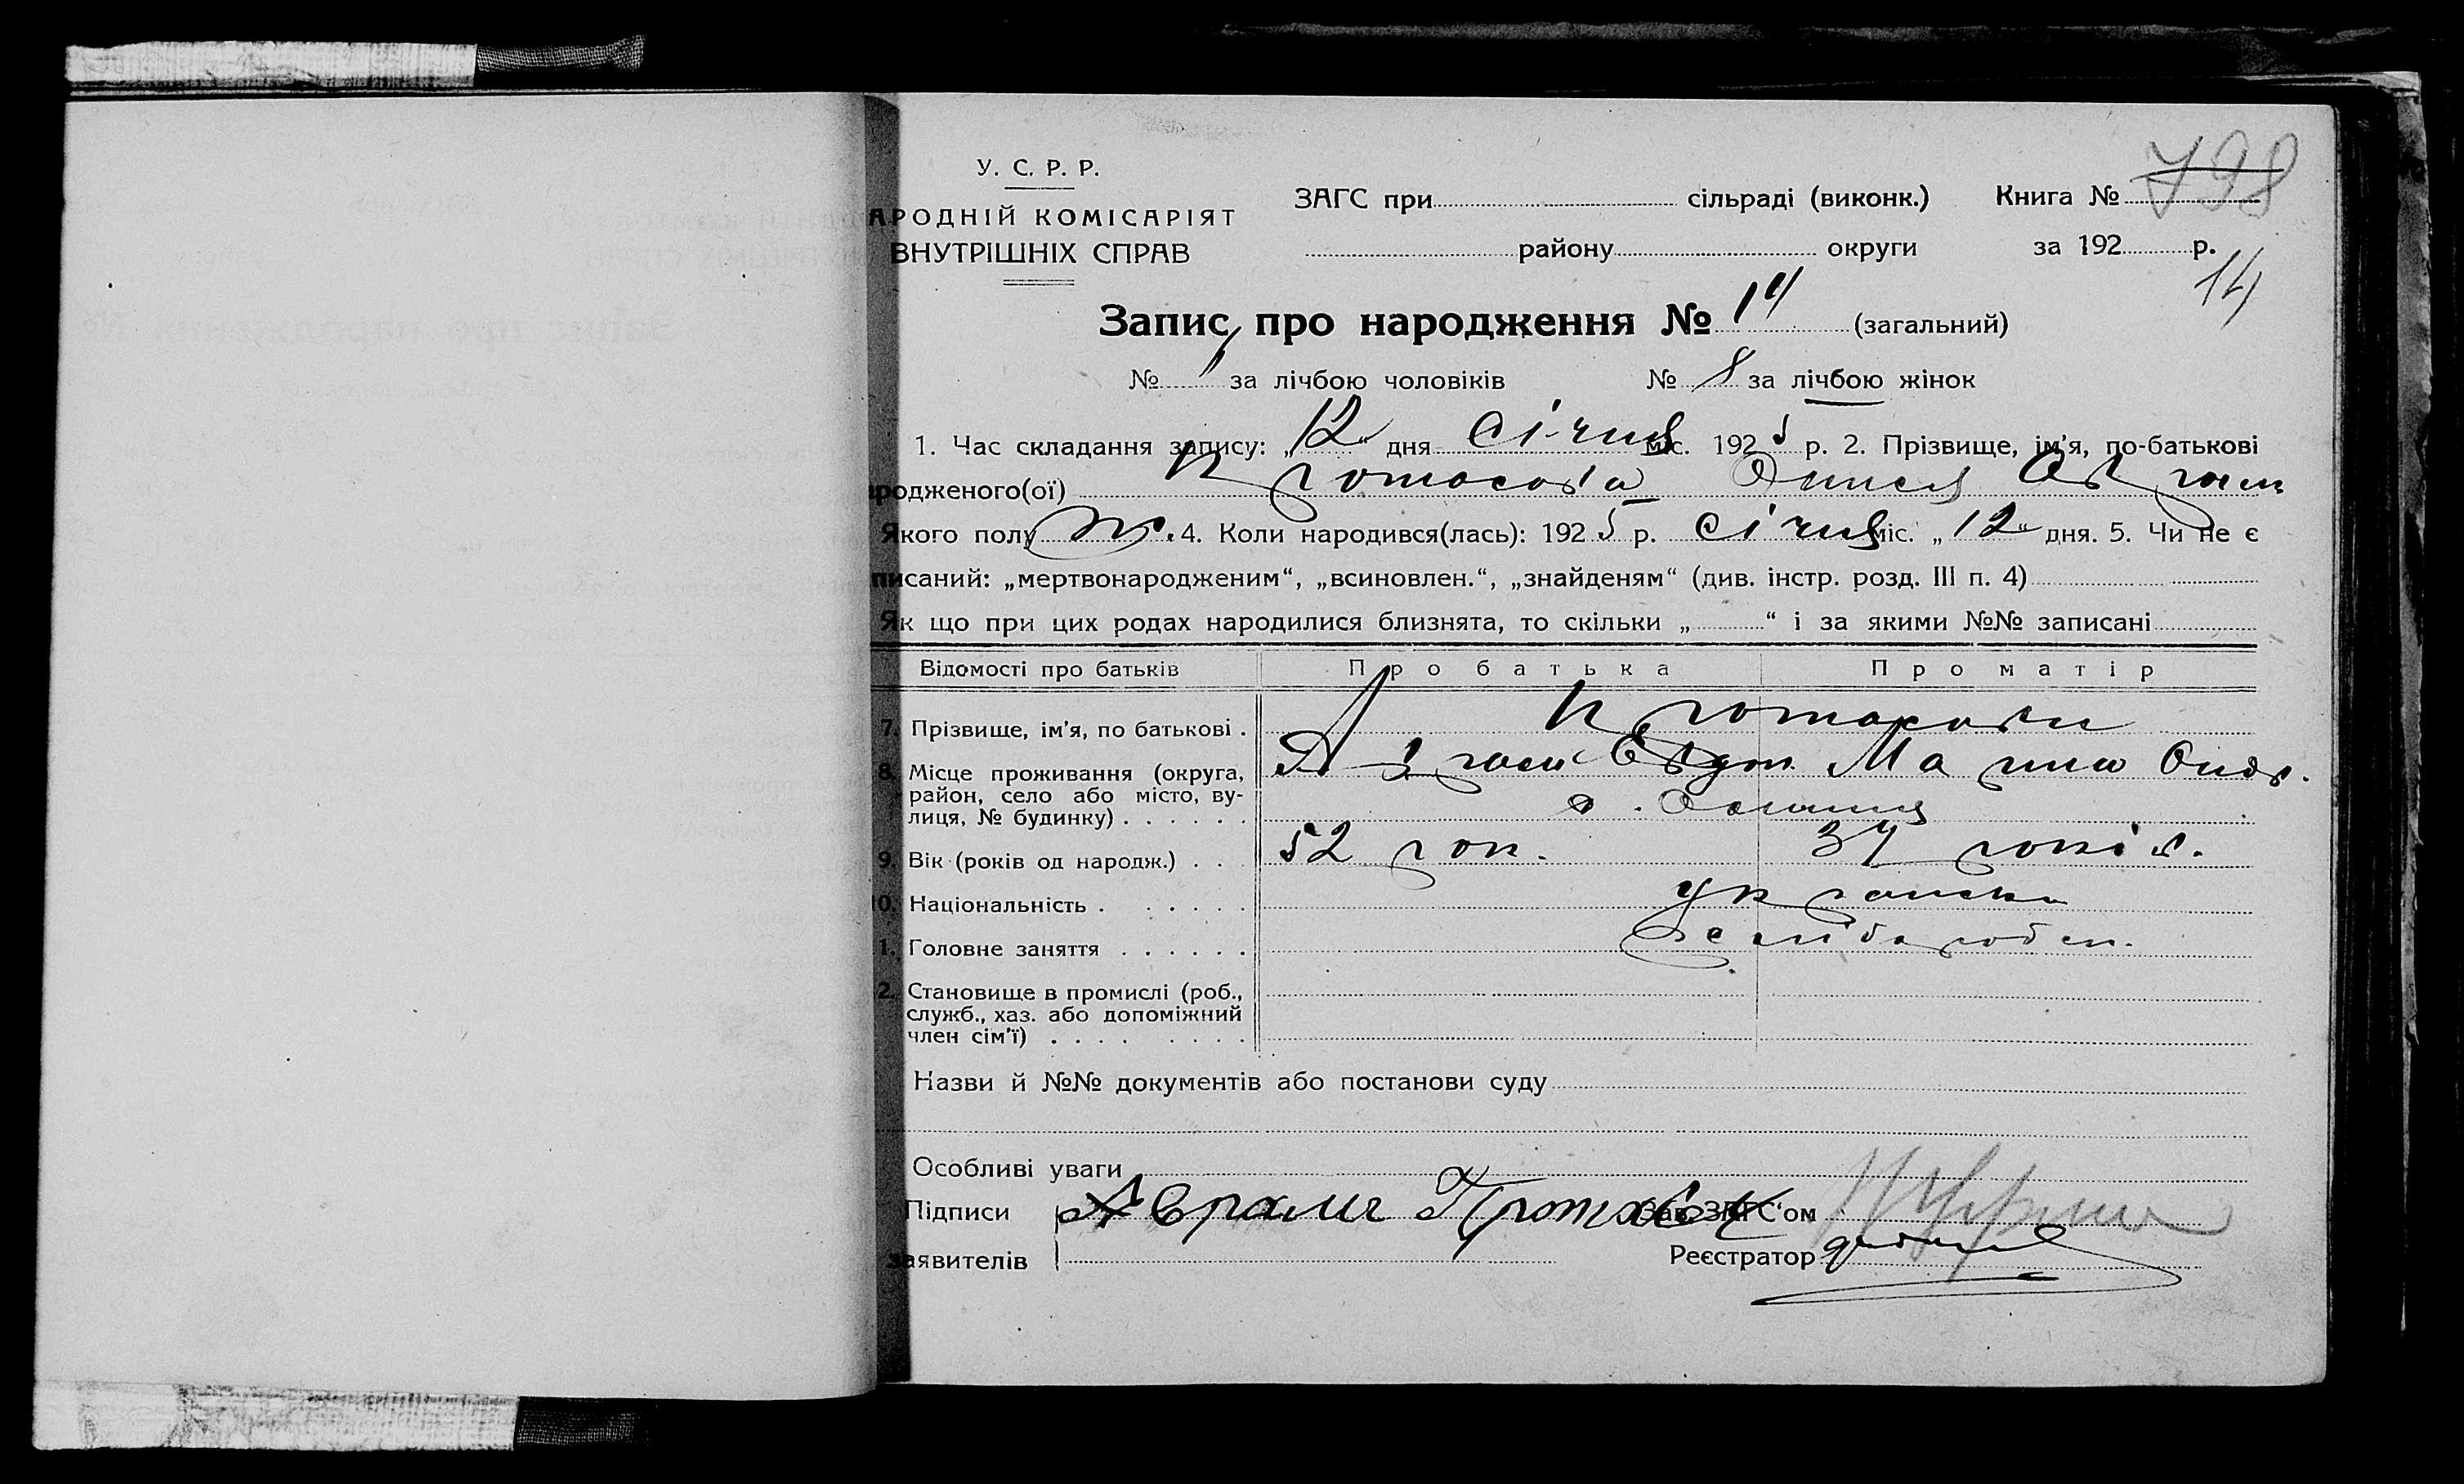 798
У. С. Р. Р.
АРОДНІЙ КОМІСАРІЯТ
ВНУТРІШНІХ СПРАВ
ЗАГС при сільраді (виконк.) Книга №
району округи за 192 р.
14
Запис про народження № 14 (загальний)
№ за лічбою чоловіків № 8 за лічбою жінок
1. Час складання запису: „12“ дня Січня міс. 1925 р. 2. Прізвище, ім'я, по-батькові
родженого(ої) Протасова
Якого полу ж. 4. Коли народився(лась): 1925 р. січня міс. „12“ дня. 5. Чи не є
писаний: „мертвонародженим“, „всиновлен.“, „знайденям“ (див. інстр. розд. III п. 4)
Як що при цих родах народилися близнята, то скільки „ “ і за якими №№ записані
Відомості про батьків Про батька Про матір
7. Прізвище, ім'я, по батькові . Протасови
8. Місце проживання (округа, район, село або місто, вулиця, № будинку) . . . . . .
Мария
9. Вік (років од народж.) . . 52 рок. 34 років.
10. Національність . . . . . .
1. Головне заняття . . . . . .
2. Становище в промислі (роб.,
служб., хаз. або допоміжний
член сім'ї) . . . . . . . .
Назви й №№ документів або постанови суду
Особливі уваги
Підписи Аврамъ Зав. ЗАГС'ом
заявителів Реєстратор